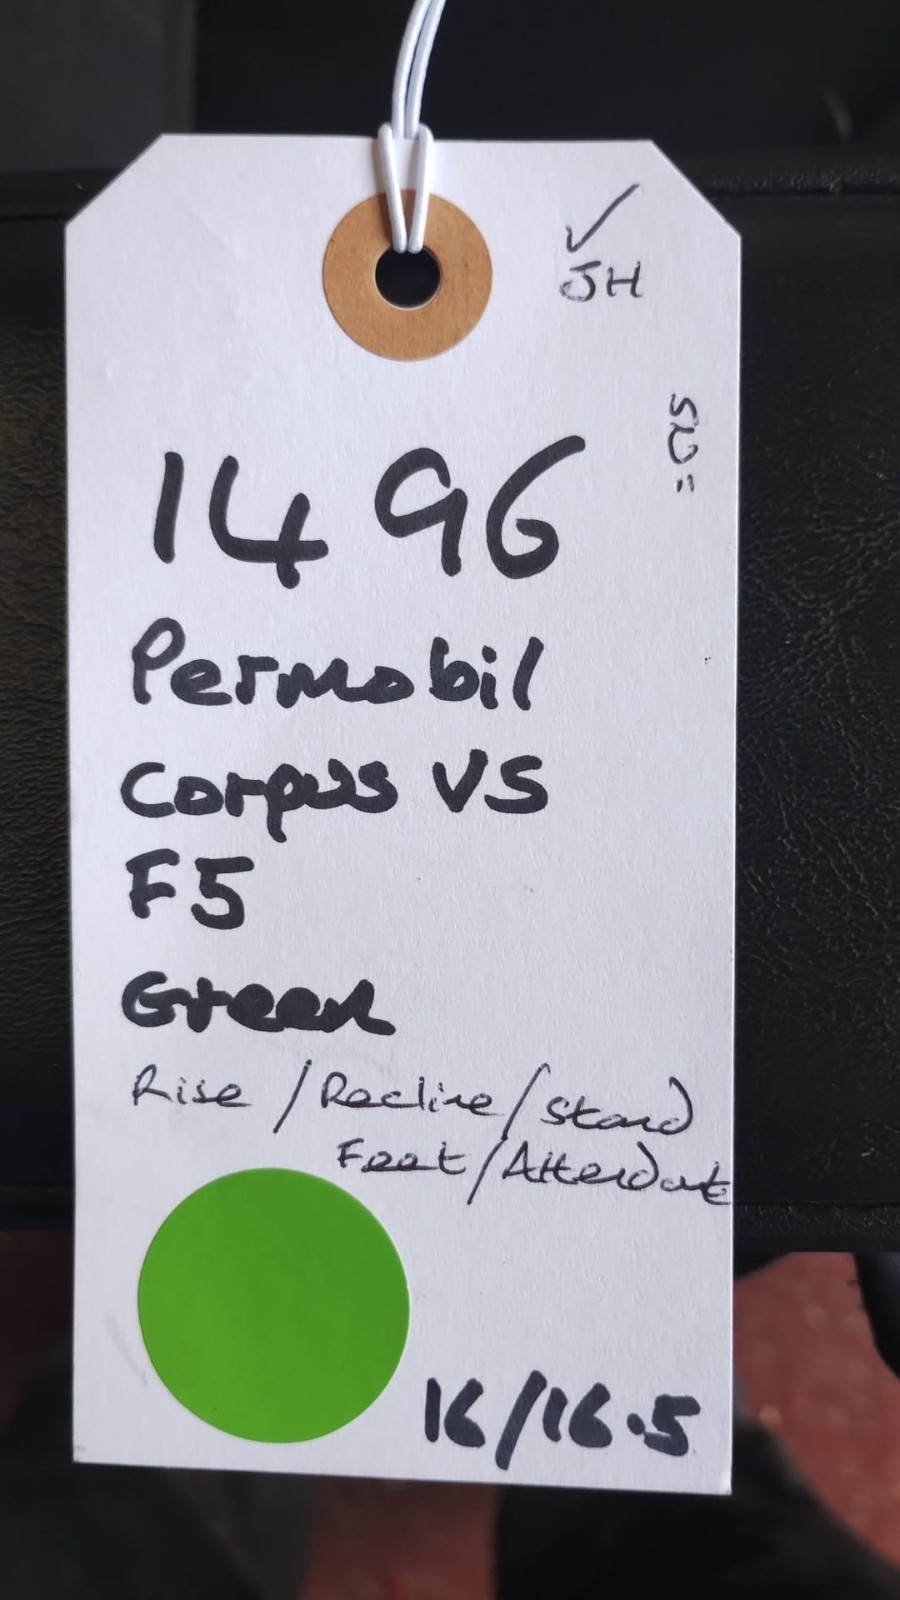 ✓
JH
SU=
1496
Permobil
Corpus VS
F5
Green
Rise / Recline / Stand
Feet / Attendant
16/16.5